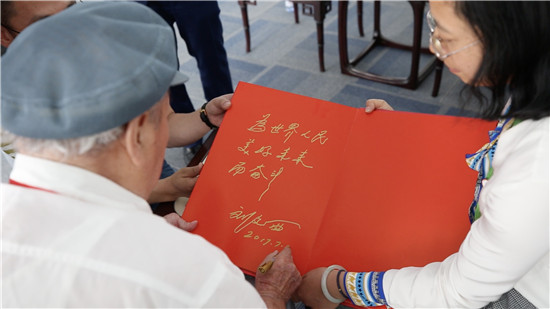 為世界人民
美好未来
而奋斗
刘文西
2017.7.